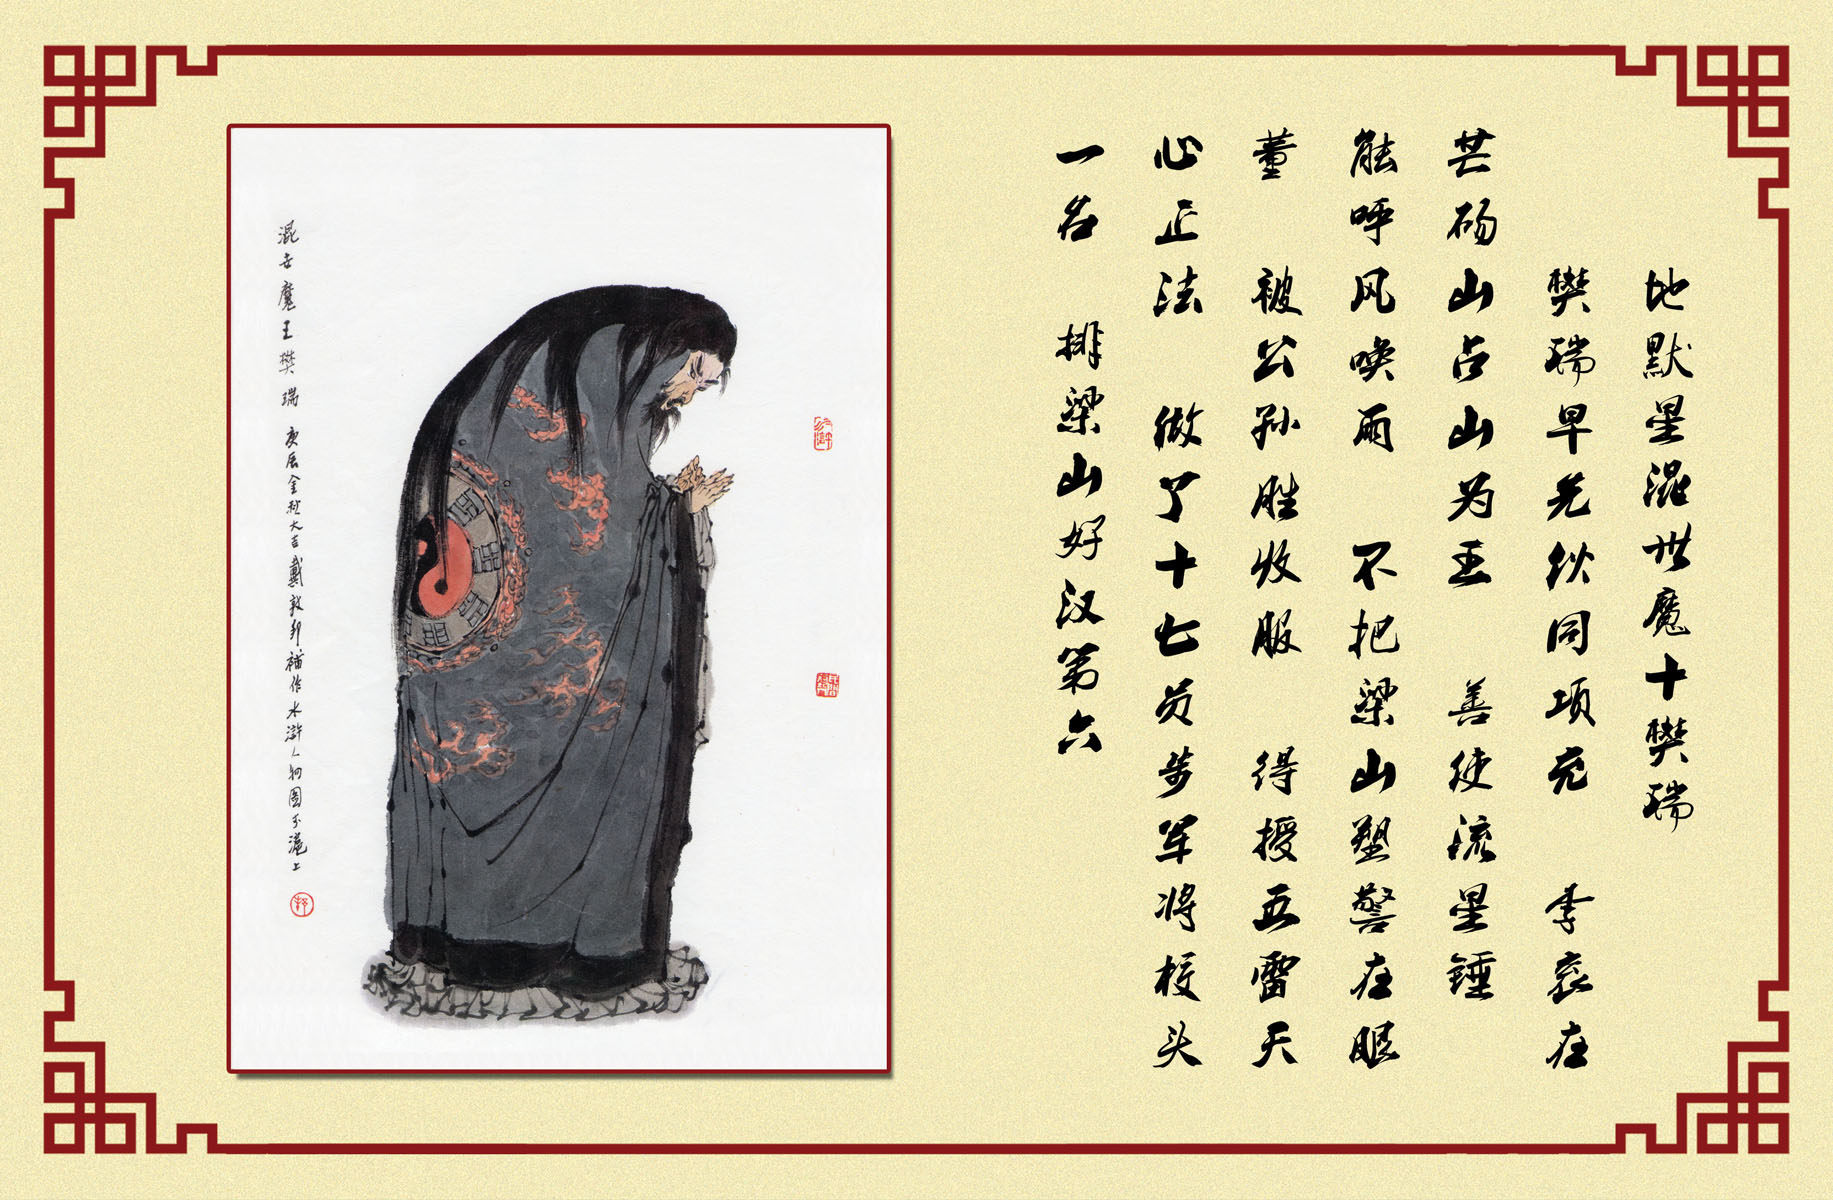 地默星混世魔十樊瑞
樊瑞早先伙同项充 李衮在
芒砀山占山为王 善使流星锤
能呼风唤雨 不把梁山塑警在眼
董 被公孙胜收服 得授五雷天
心正法 做了十七员步军将校头
一名 排梁山好汉第六
混世魔王樊瑞 庚辰金秋大吉戴敦邦補作水滸人物圖于滬上
邦